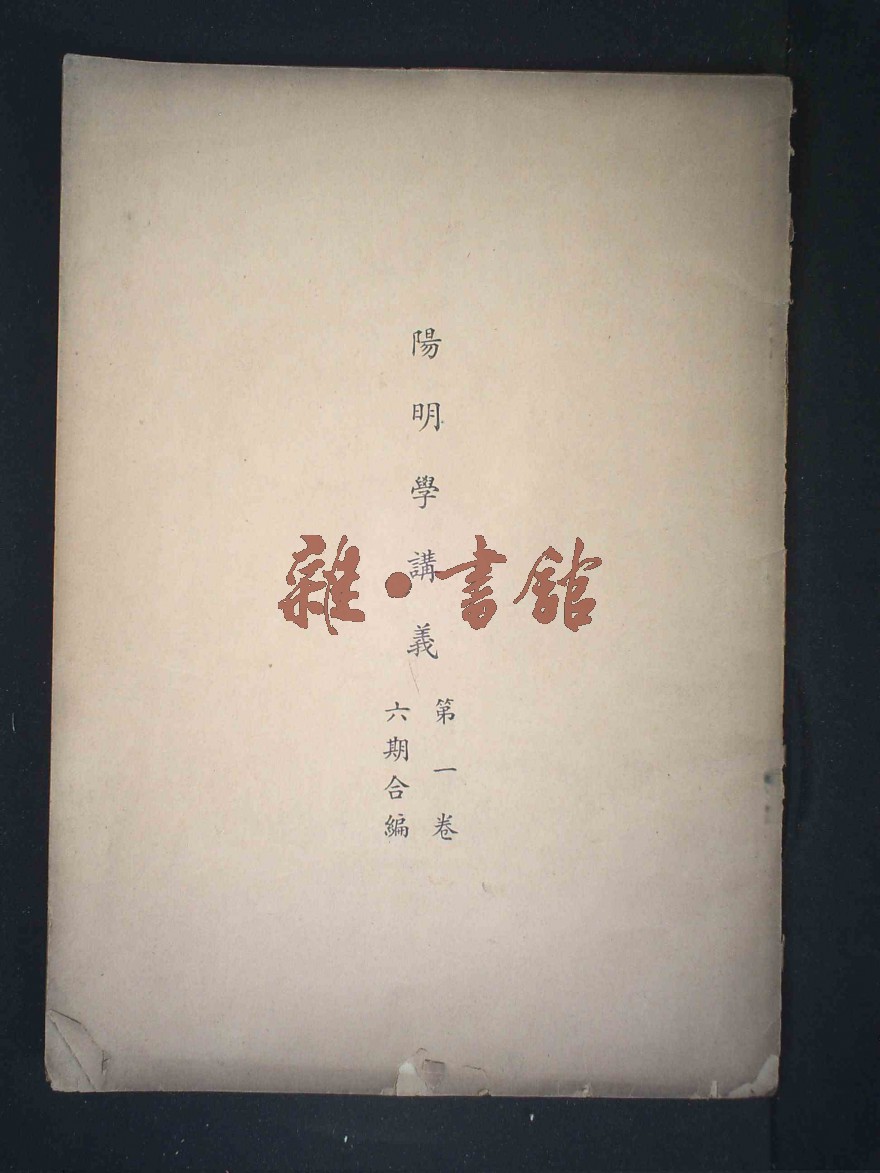 陽明學講義
第一卷
六期合編
雜·書館